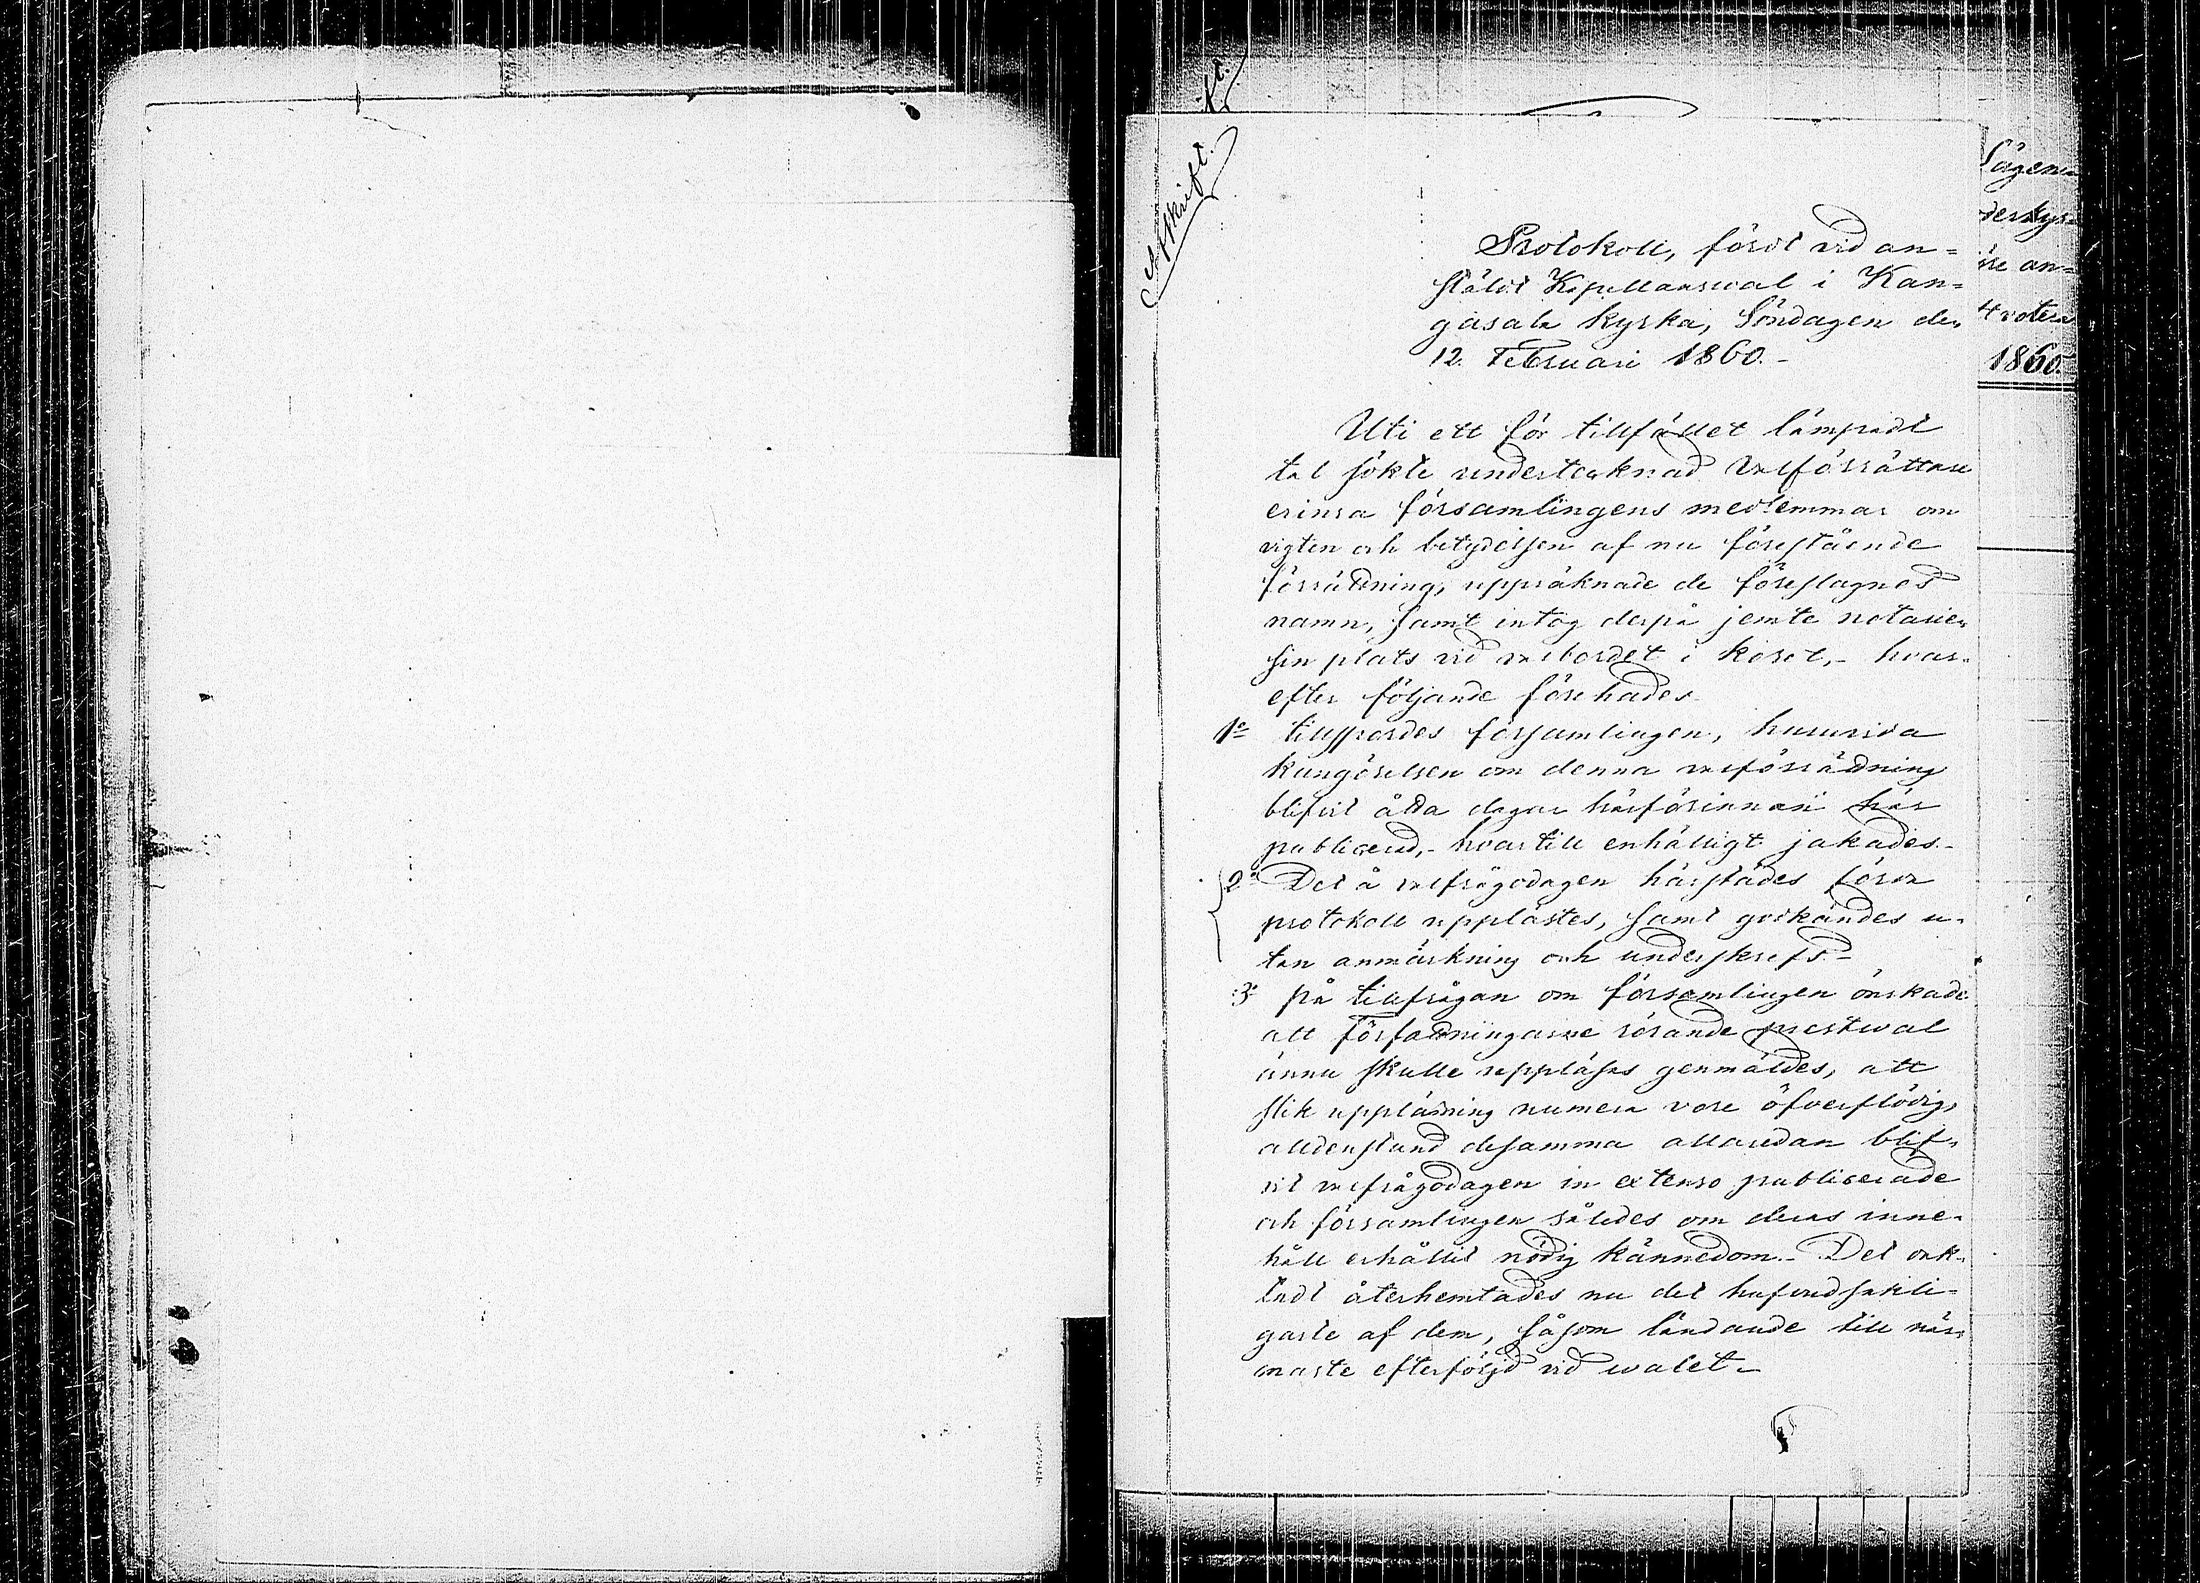 Afskrift.
Protokoll, fördt vid an-
stäldt Kapellanswal i Kan-
gasala kyrka, Söndagen den
12. Februari 1860.-
Uti ett för tillfället lämpadt
tal sökte undertecknad Valförrättare
erinra församlingens medlemmar om
vigten och betydelsen af nu förestående
förrättning, uppräknade de föreslagnes
namn, samt intog derpå jemte notarien
sin plats vid valbordet i koret,- hvar-
efter följande förehades
1o tillspordes församlingen, huruvida
kungörelsen om denna valförrättning
blifvit åtta dagar härförinnan här
publicerad,- hvartill enhälligt jakades.-
2o Det å valfrågodagen härstädes förda
protokoll upplästes, samt godkändes u-
tan anmärkning och underskrefs-
3o på tillfrågan om församlingen önskade
att författningarne rörande prestwal
ännu skulle uppläsas genmäldes, att
slik uppläsning numera vore öfverflödig,
alldenstund desamma allaredan blif-
vit valfrågodagen in extenso publicerade
och församlingen således om deras inne-
håll erhållit nödig kännedom.- Det oak-
tadt återhemtades nu det hufvudsakli-
gaste af dem, såsom ländande till när-
maste efterföljd vid walet-
Lägen
derkyr
ire an-
4 rotera
1860.